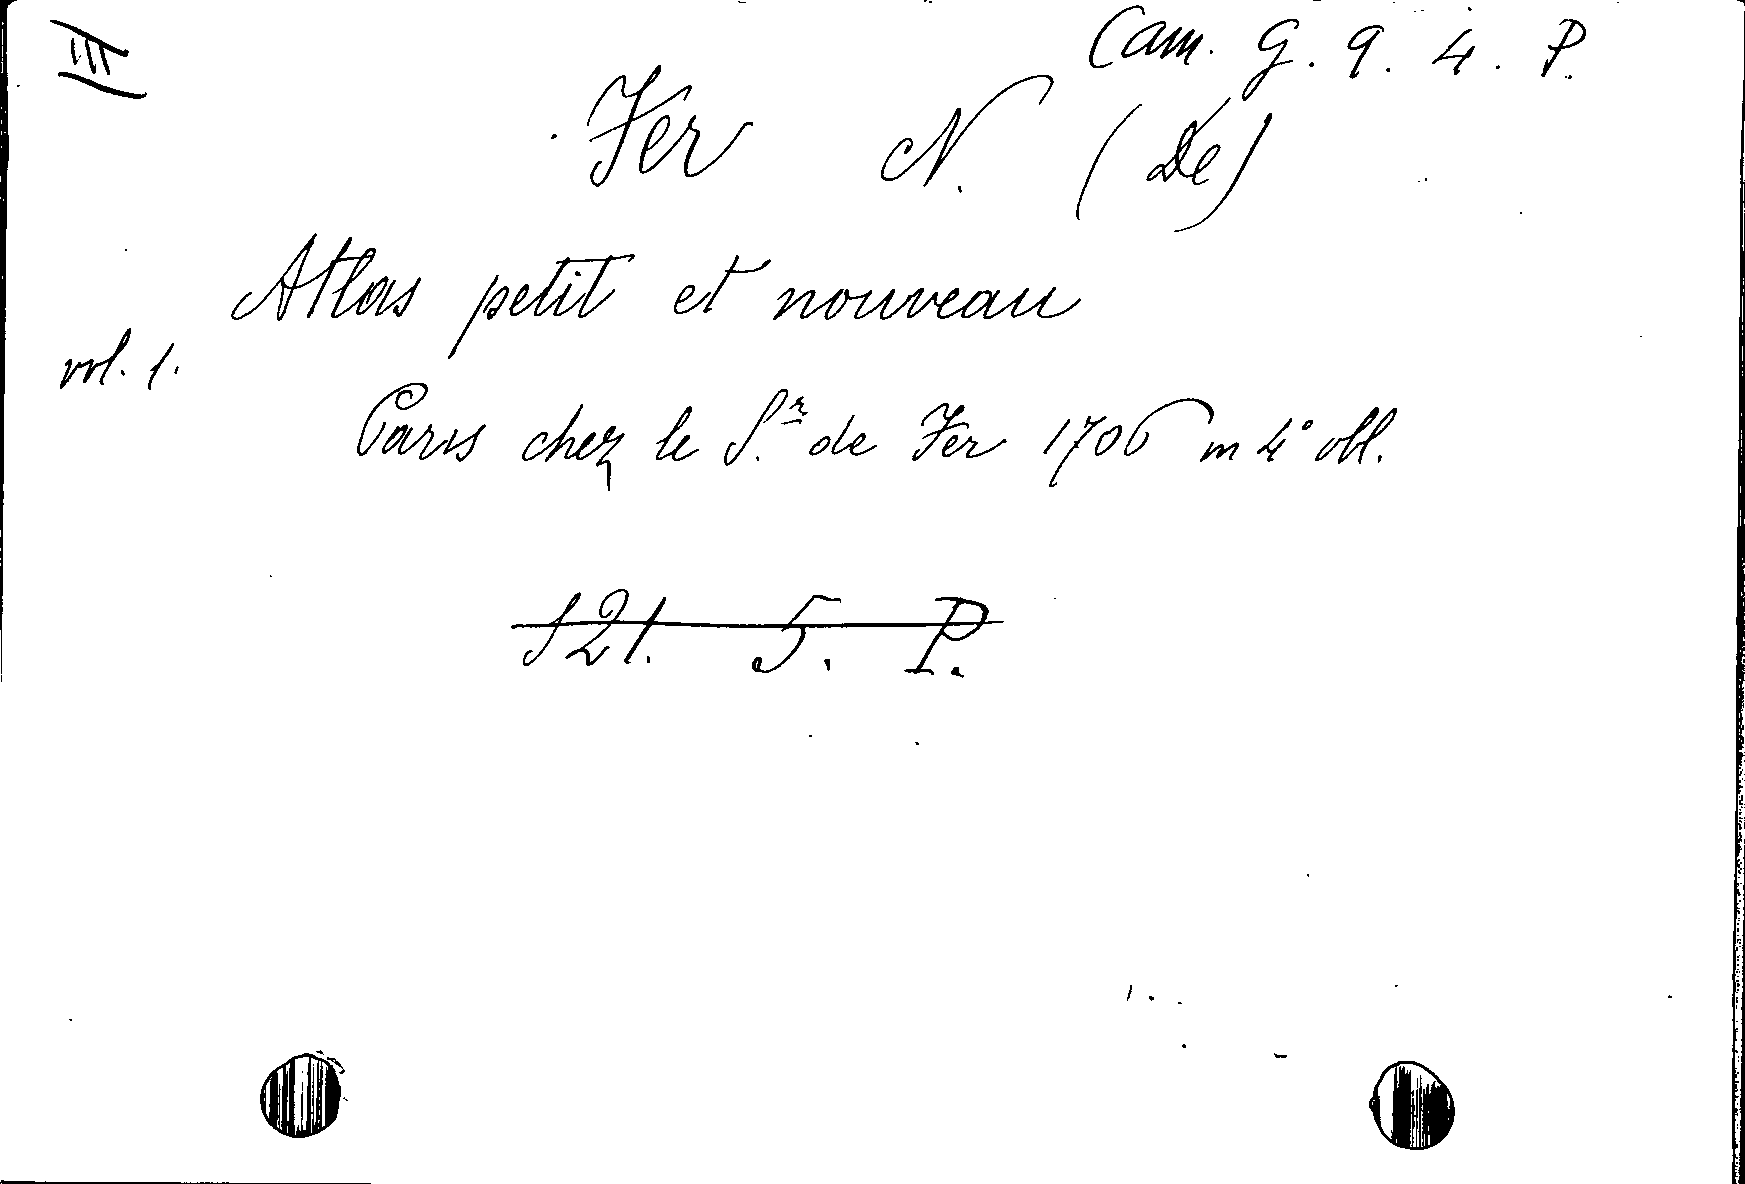 III
Cam. G. 9. 4. P.
Fer N. (De)
Atlas petit et nouveau
vol. 1.
Paris chez le S.r de Fer 1706 in 4° obl.
121. 5. P.